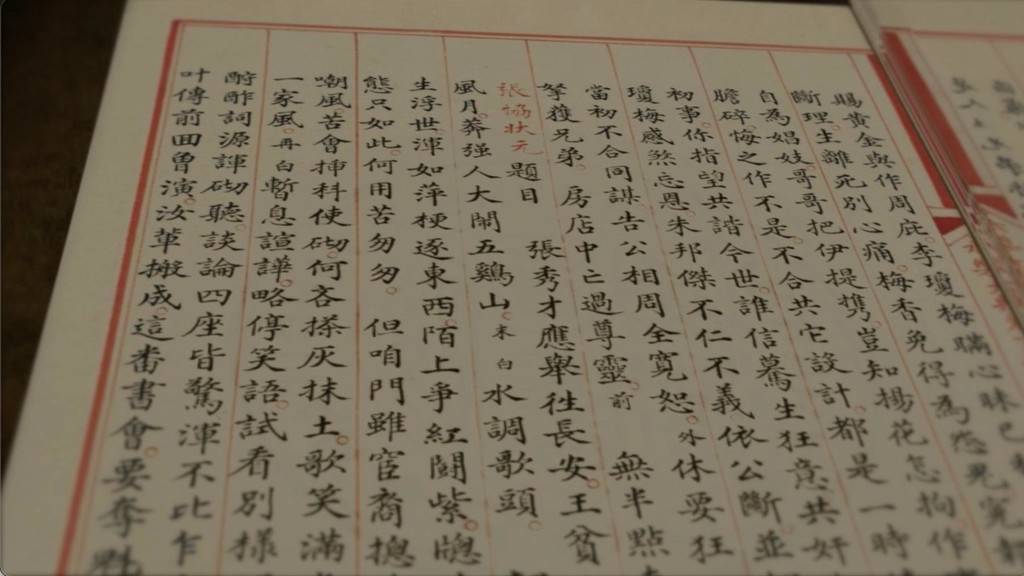 賜黃金與作周庇。李瓊梅瞞心昧已
斷理。生離死別心痛。梅香免得為怨鬼冤都
自為娼妓。哥哥把伊提携。豈知揚花怎拘作
膽碎悔之作不是。不合共它設計。都是一時
初事。你指望共諧今世。誰信驀生狂意共奸
瓊梅感煞忘恩。朱邦傑不仁不義依公斷並
當初不合同謀告公相周全寬恕。外休要狂
孥獲兄弟。房店中亡過尊靈。前 無半點
張協狀元 題目 張秀才應舉徃長安。王貧
風月。莽强人大鬧五鷄山。末白 水調歌頭。
生浮世。渾如萍梗逐東西。陌上爭紅鬪紫。牕
態只如此。何用苦匆匆。 但咱門雖宦裔摠
嘲風苦會揷科使砌。何吝搽灰抹土。歌笑滿
一家風。再白暫息諠譁。略停笑語。試看別樣
酧酢詞源諢砌。聽談論四座皆驚渾不比乍
叶傳前回曾演。汝輩搬成。這番書會。要奪魁